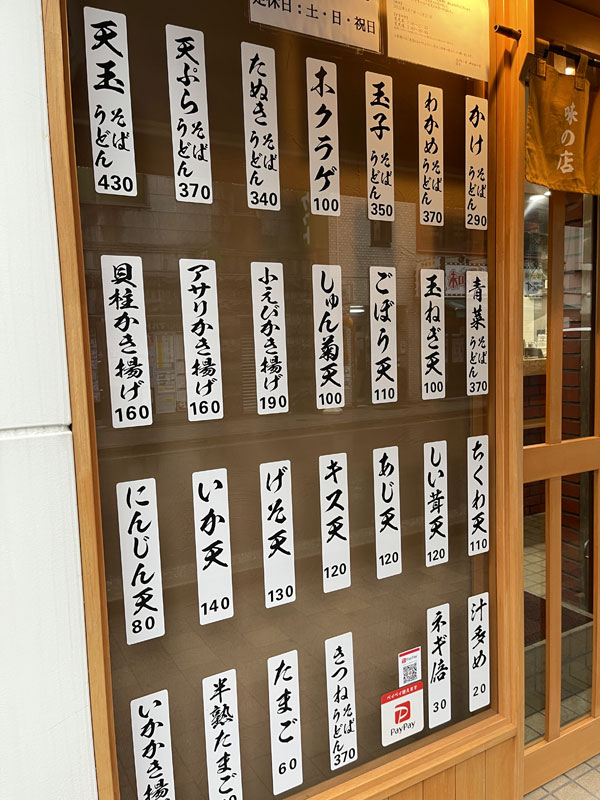 定休日：土・日・祝日
味の店
かけ そば うどん 290
わかめ そば うどん 370
玉子 そば うどん 350
ホクラゲ 100
たぬき そば うどん 340
天ぷら そば うどん 370
天玉 そば うどん 430
青菜 そば うどん 370
玉ねぎ天 100
ごぼう天 110
しゅん菊天 100
小えびかき揚げ 190
アサリかき揚げ 160
貝柱かき揚げ 160
ちくわ天 110
しい茸天 120
あじ天 120
キス天 120
げそ天 130
いか天 140
にんじん天 80
汁多め 20
ネギ倍 30
PayPay
ペイペイ使えます
PayPay
きつね そば うどん 370
たまご 60
半熟たまご
いかかき揚